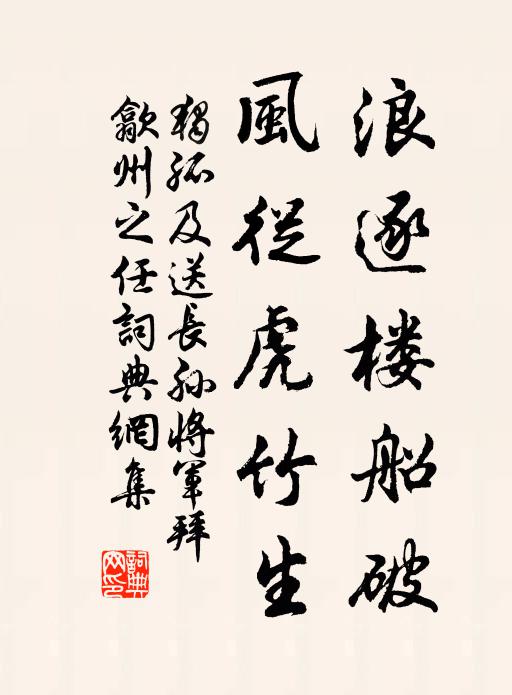 浪逐楼船破
風從虎竹生
獨孤及送長孫將軍拜
歙州之任詞典網集
詞典網印